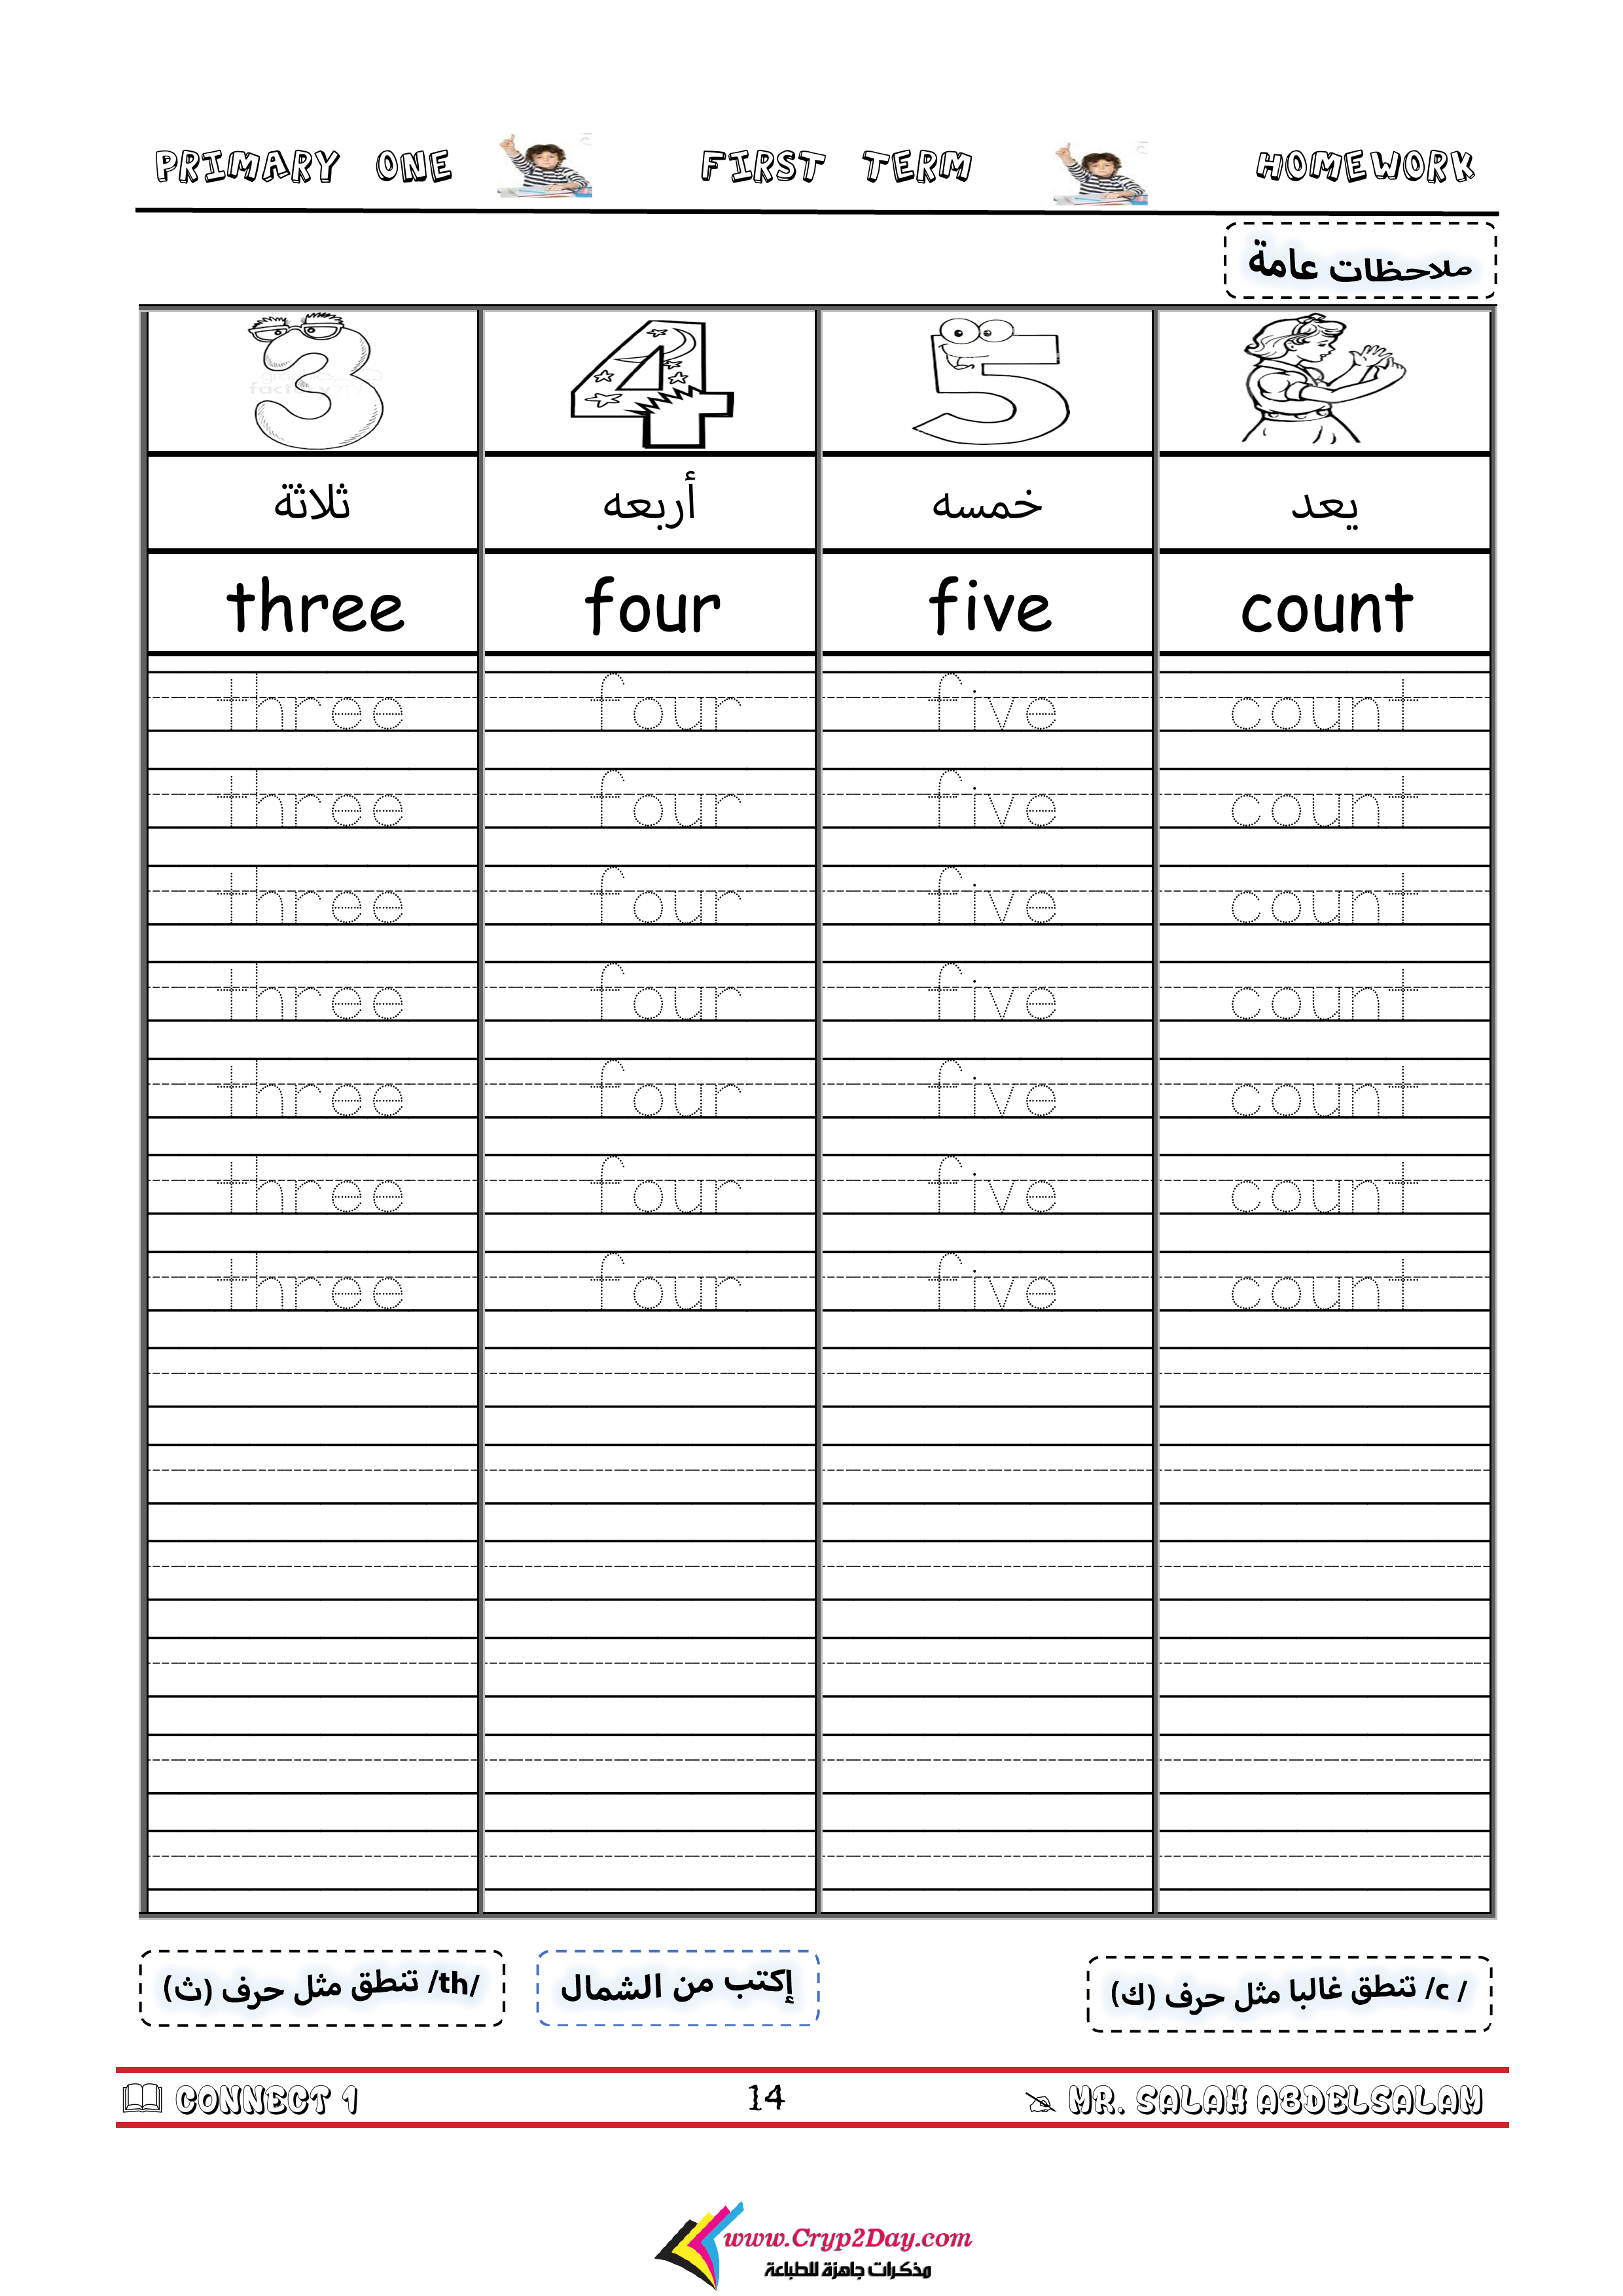 PRIMARY ONE FIRST TERM HOMEWORK
ملاحظات عامة
ثلاثة أربعه خمسه يعد
three four five count
three four five count
three four five count
three four five count
three four five count
three four five count
three four five count
three four five count
/th/ تنطق مثل حرف (ث)
إكتب من الشمال
/ c/ تنطق غالبا مثل حرف (ك)
CONNECT 1 14 MR. SALAH ABDELSALAM
www.Cryp2Day.com
مذكرات جاهزة للطباعة